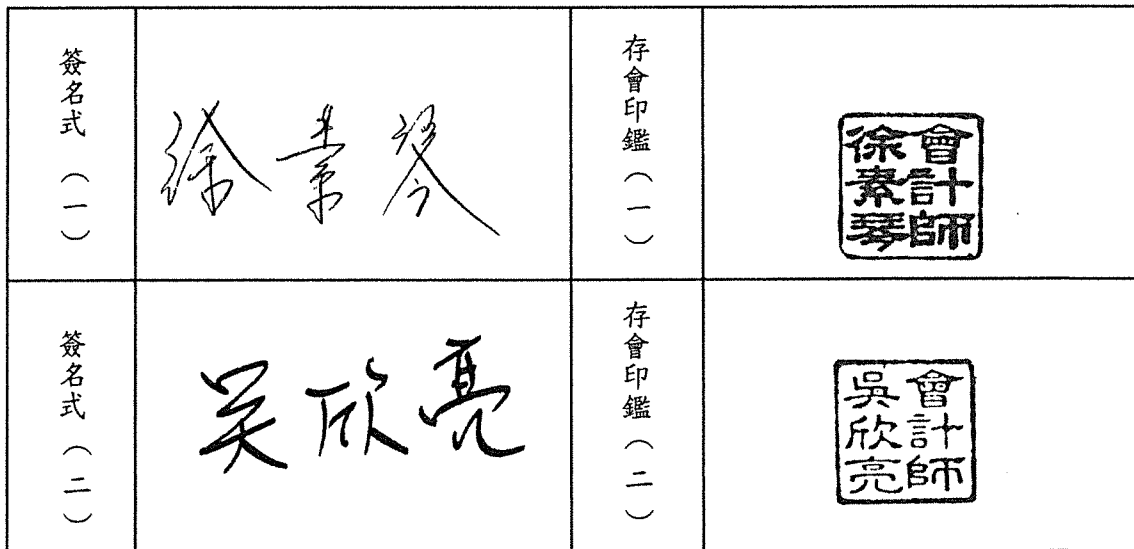 簽名式（一）
徐素琴
存會印鑑（一）
會計師
徐素琴
簽名式（二）
吳欣亮
存會印鑑（二）
會計師
吳欣亮